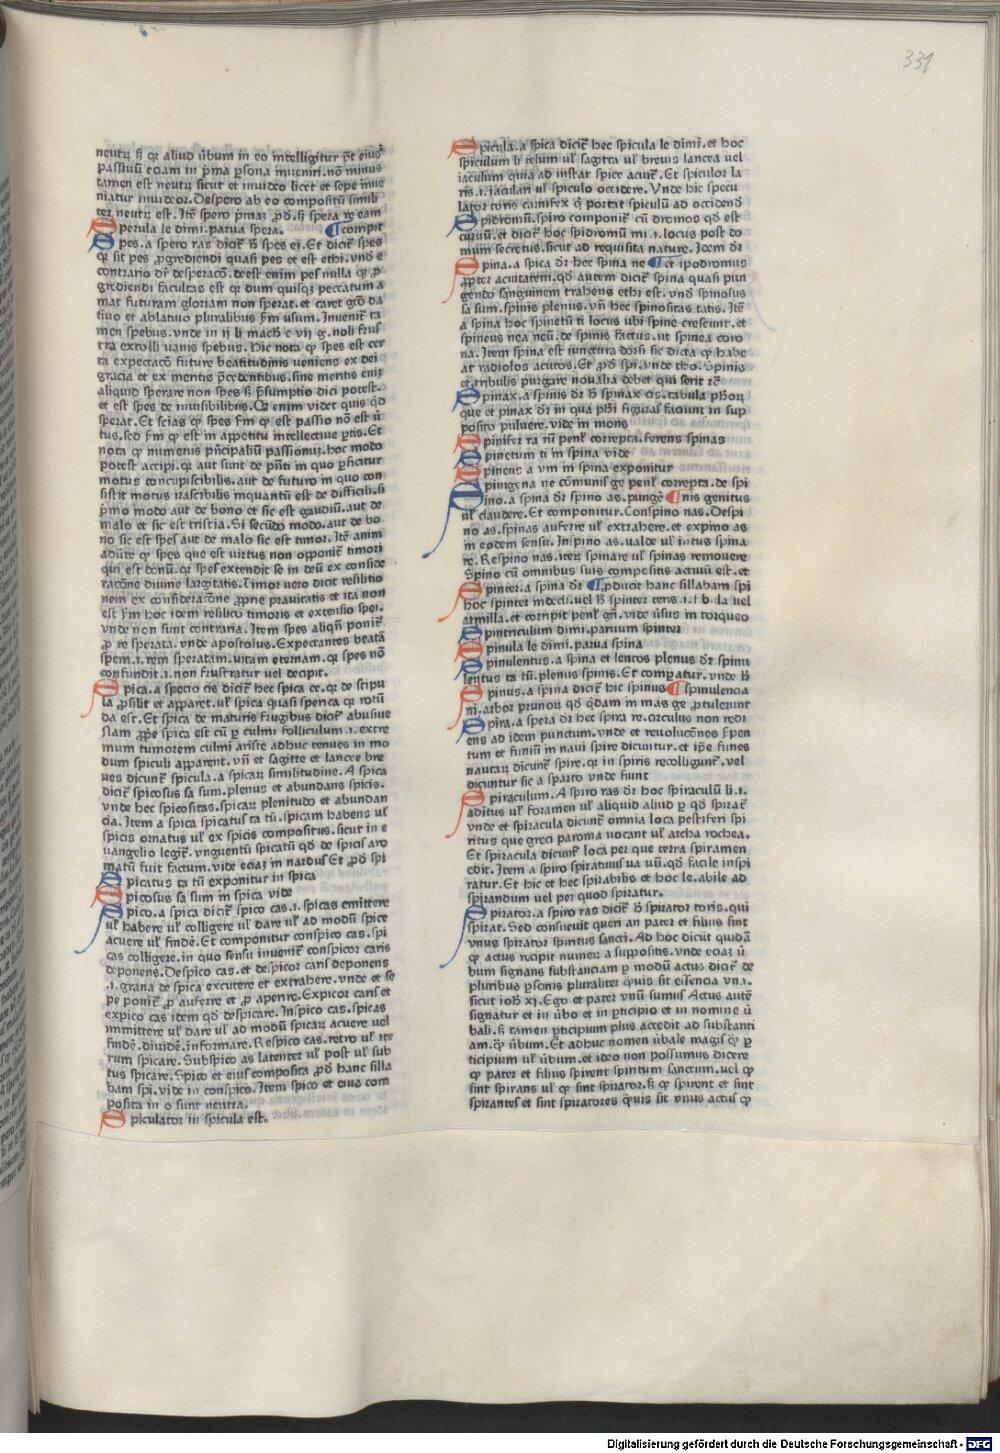 331
neutrum sed quia aliud verbum in eo intelligitur preter eius
passiuum eciam in prima persona inueniri. non minus
tamen est neutrum sicut et inuideo licet et sepe inue
niatur inuideor. Despero ab eo compositum simili
ter neutrum est. Item spero primam produ. sed spera rem eam
Sperula le dimi. parua spera. ¶ compit
Spes. a spero ras dicitur hec spes ei. Et dicitur spes
quia sit pes progrediendi quasi pes et est ethi. vnde e
contrario dicitur desperacio. deest enim pes nulla quia pro
grediendi facultas est quia dum quisque peccatum a
mat futuram gloriam non sperat. et caret genitiuo da
tiuo et ablatiuo pluralibus secundum vsum. Inuenitur ta
men spebus. vnde in ij li mach e vij g. noli frus
tra extolli uanis spebus. Hic nota quod spes est cer
ta expectacio future beatitudinis veniens ex dei
gracia et ex meritis precedentibus. sine meritis enim
aliquid sperare non spes sed presumptio dici potest.
et est spes de inuisibilibus. Quod enim videt quis quid
sperat. Et scias quod spes secundum quod est passio non est uir
tus. sed secundum quod est in appetitu intellectiue partis. Et
nota quod numerus principalium passionum. hoc modo
potest accipi. quia aut sunt de presenti in quo perficitur
motus concupiscibilis. aut de futuro in quo con
sistit motus irascibilis inquantum est de difficili. si
primo modo aut de bono et sic est gaudium. aut de
malo et sic est tristia. Si secundo modo. aut de bo
no sic est spes aut de malo sic est timor. Item anim
aduerte quod spes que est virtus non opponitur timori
qui est donum. quia spes extendit se in deum ex conside
racione diuine largitatis. Timor uero dicit resilitio
nem ex consideracione proprie prauitatis et ita non
est secundum hoc idem resilitio timoris et extensio spei.
vnde non sunt contraria. Item spes aliquando ponitur
pro re sperata. vnde apostolus. Expectantes beatam
spem. i. rem speratam. uitam eternam. quia spes non
confundit. i. non frustratur uel decipit.
Spica. a specio cis dicitur hec spica ce. quia de stipu
la prosilit et apparet. uel spica quasi sperica quia rotun
da est. Et spica de maturis frugibus dicitur abusiue
Nam proprie spica est cum per culmi folliculum. i. extre
mum tumorem culmi ariste adhuc tenues in mo
dum spiculi apparent. vnde et sagitte et lancee bre
ues dicuntur spicula. a spicarum similitudine. A spica
dicitur spicosus sa sum. plenus et abundans spicis.
vnde hec spicositas. spicarum plenitudo et abundan
cia. Item a spica spicatus ta tum. spicam habens uel
spicis ornatus uel ex spicis compositus. sicut in e
uangelio legitur. vnguentum spicatum quod de spicis aro
matum fuit factum. vide eciam in nardus Et prod spi
Spicatus ta tum exponitur in spica
Spicosus sa sum in spica vide
Spico. a spica dicitur spico cas. i. spicas emittere
uel habere uel colligere uel dare uel ad modum spice
acuere uel findere. Et componitur conspico cas. spi
cas colligere. in quo sensu inuenitur conspicor caris
deponens. Despico cas. et despicor caris deponens
. i. grana de spica excutere et extrahere. vnde et se
pe ponitur pro auferre et pro aperire. Expicor caris et
expico cas idem quod despicare. Inspico cas. spicas
immittere uel dare uel ad modum spicarum acuere uel
findere. diuidere. informare. Respico cas. retro uel ite
rum spicare. Subspico as latenter uel post uel sub
tus spicare. Spico et eius composita prod hanc silla
bam spi. vide in conspico. Item spico et eius com
posita in o sunt neutra.
Spiculator in spicula est.
Spicula. a spica dicitur hec spicula le dimi. et hoc
spiculum li telum uel sagitta uel breuis lancea uel
iaculum quia ad instar spice acuitur. Et spiculor la
ris. i. iaculari uel spiculo occidere. Vnde hic specu
lator toris carnifex qui portat spiculum ad occidendum
Spidromum. spiro componitur cum dromos quod est
cursus. et dicitur hoc spidromum mi. i. locus post do
mum secretus. sicut ad requisita nature. Idem dicitur
Spina. a spica dicitur hec spina ne ¶ et ipodromus
propter acuitatem. quod autem dicitur spina quasi pun
gendo sanguinem trahens ethi est. vnde spinosus
sa sum. spinis plenus. vnde hec spinositas tatis. Item
a spina hoc spinetum ti locus ubi spine crescunt. et
spineus nea neum. de spinis factus. ut spinea coro
na. Item spina est iunctura dorsi sic dicta quod habe
at radiolos acutos. Et prod spi. vnde tho. Spinis
et tribulis purgare noualia debet qui serit etc
Spinax. a spinis dicitur hec spinax cis. tabula phorum
que et pinax dicitur in qua phi figuras faciunt in sup
posito puluere. vide in mons
Spinifer ra rum penul correpta. ferens spinas
Spinetum ti in spina vide
Spineus a um in spina exponitur
Spinigena ne communis ge penul correpta. de spi
Spino. a spina dicitur spino as. pungere ¶ nis genitus
uel claudere. Et componitur. Conspino nas. Despi
no as. spinas auferre uel extrahere. et expino as
in eodem sensu. Inspino as. ualde uel intus spina
re. Respino nas. iterum spinare uel spinas remouere
Spino cum omnibus suis compositis actiuum est. et
Spinter. a spina dicitur ¶ producit hanc sillabam spi
hoc spinter indecli. uel hec spinter teris. i. fibula uel
armilla. et corripit penul genitiui. vide versus in torqueo
Spintriculum dimi. paruum spinter
Spinula le dimi. parua spina
Spinulentus. a spina et lentos plenus dicitur spinu
lentus ta tum. plenus spinis. Et comparatur. vnde hec
Spinus. a spina dicitur hic spinus ¶ spinulencia
ni. arbor prunorum quod quidam in mas ge protulerunt
Spira. a spera dicitur hec spira re. circulus non redi
ens ad idem punctum. vnde et reuoluciones serpen
tum et funium in naui spire dicuntur. et ipse funes
nautarum dicuntur spire. quia in spiris recolligunt. vel
dicuntur sic a sparto vnde fiunt
Spiraculum. A spiro ras dicitur hoc spiraculum li. i.
aditus uel foramen uel aliquid aliud per quod spirat
vnde et spiracula dicuntur omnia loca pestiferi spi
ritus que greci paroma uocant uel archa rochea.
Et spiracula dicuntur loca per que terra spiramen
edit. Item a spiro spiratiuus ua uum. quod facile inspi
ratur. Et hic et hec spirabilis et hoc le. abile ad
spirandum uel per quod spiratur.
Spirator. a spiro ras dicitur hec spirator toris. qui
spirat. Sed consueuit queri an pater et filius sint
vnus spirator spiritus sancti. Ad hoc dicunt quidam
quod actus recipit numerum a suppositis. vnde eciam uer
bum signans substanciam per modum actus dicitur de
pluribus personis pluraliter quamuis sit essencia vna.
sicut ioh xj. Ego et pater vnum sumus Actus autem
signatur et in verbo et in participio et in nomine uer
bali. sed tamen participium plus accedit ad substanti
am. quam verbum. Et adhuc nomen verbale magis quam par
ticipium uel verbum. et ideo non possumus dicere
quod pater et filius spirent spiritum sanctum. uel quod
sint spirans uel quod sint spirator. sed quod spirent et sint
spirantes et sint spiratores quamuis sit vnus actus quo
Digitalisierung gefördert durch die Deutsche Forschungsgemeinschaft - DFG